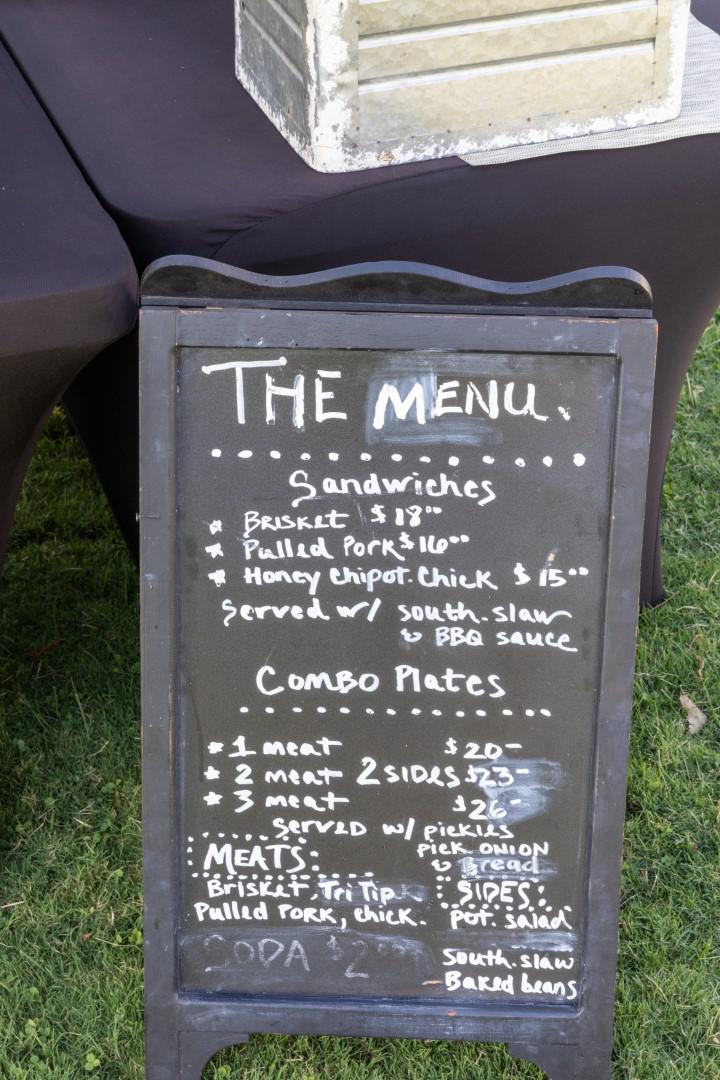 THE MENU.
Sandwiches
* BRISKET $18⁰⁰
* Pulled Pork $16⁰⁰
* Honey Chipot. Chick $15⁰⁰
Served w/ south. slaw
& BBQ sauce
COMBO Plates
* 1 meat $20-
* 2 meat 2 SIDES $23-
* 3 meat $26-
SERVED w/ pickles
PICK. ONION
& Bread
MEATS:
Brisket, Tri Tip
Pulled PORK, chick.
SIDES:
pot. salad
South. slaw
Baked beans
SODA $2